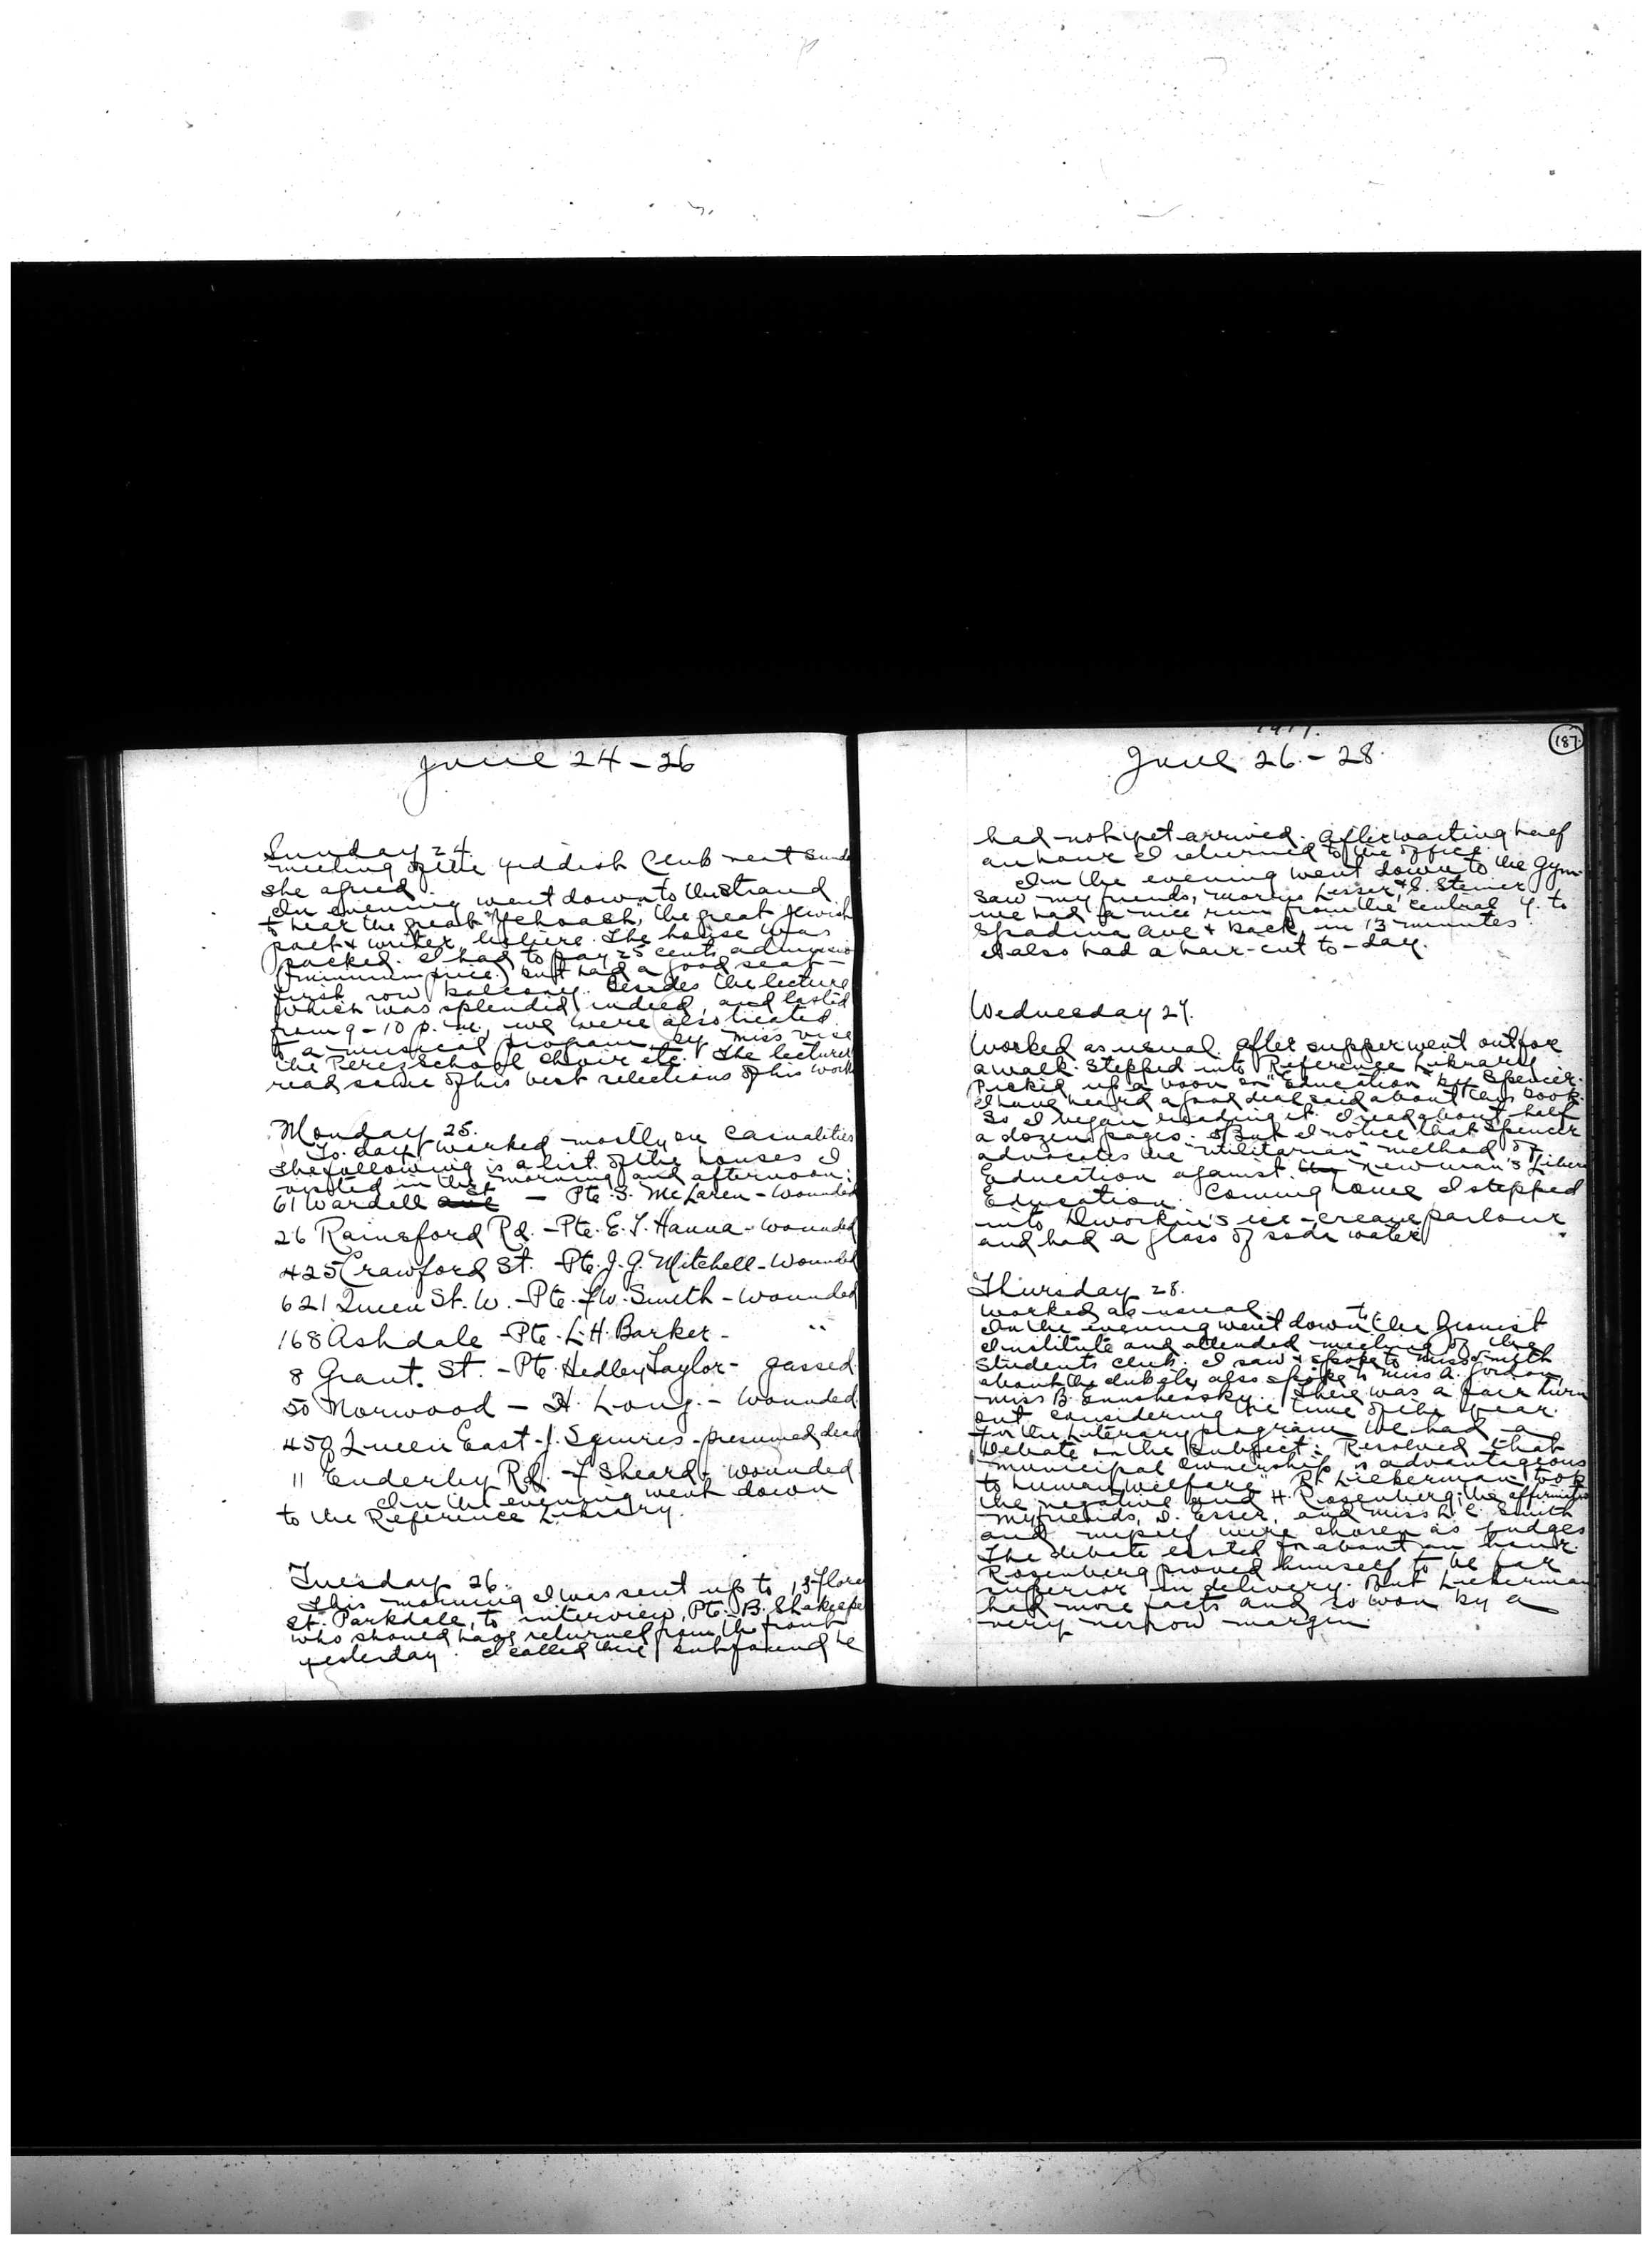 June 24-26
Sunday 24
meeting of the Yiddish Club next Sunda
she agreed.
In evening went down to the Strand
to hear the great "Yehoash", the great Jewish
poet & writer, lecture. The house was
packed. I had to pay 25 cents admission
(minimum price) but had a good seat -
first row balcony. Besides the lecture
which was splendid indeed, and lasted
from 9-10 p.m., we were also treated
to a musical program by Miss
the Perez School choir etc. The lecturer
read some of his best selections of his work
Monday 25.
To-day worked mostly on casualities
The following is a list of the houses I
visited in the morning and afternoon:
61 Wardell St - Pte. S. McLaren - Wounded
26 Rainsford Rd. - Pte. E. T. Hanna - wounded
425 Crawford St. - Pte. J. G. Mitchell - Wounded
621 Queen St. W. - Pte. F. W. Smith - wounded
168 Ashdale - Pte. L. H. Barker - "
8 Grant. St. - Pte. Hedley Taylor - gassed
50 Norwood - H. Long. - Wounded.
458 Queen East - J. Squires - presumed dead
11 Enderley Rd. - F Sheard - wounded
In the evening went down
to the Reference Library.
Tuesday 26.
This morning I was sent up to 13 Flore
St. Parkdale, to interview, Pte. B. Shakespe
who should have returned from the front
yesterday. I called there, but found he
1917.
187.
June 26.-28.
had not yet arrived. After waiting half
an hour I returned to the office.
In the evening went down to the Gym.
Saw my friends, Morris Lesser, & S. Steiner
we had a nice run from the Central Y. to
Spadina Ave & back, in 13 minutes
I also had a hair-cut to-day.
Wednesday 27.
Worked as usual. After supper went out for
a walk. Stepped into Reference Library
Picked up a book on "Education" by Spencer.
I have heard a good deal said about this book.
So I began reading it. I read about half
a dozen pages. But I notice that Spencer
advocates the "utilitarian" method of
Education against Newman's Libera
Education. Coming home I stepped
into Dworkin's ice-cream parlour
and had a glass of soda water.
Thursday 28.
Worked as usual.
In the evening went down to the Zionist
Institute and attended meeting of the
Students Club. I saw & spoke to Miss Smith
about the club, also spoke to Miss A. Gordon,
Miss B. There was a fair turn
out considering the time of the year.
For the Literary program we had a
Debate on the subject: "Resolved that
municipal ownership is advantageous
to human welfare" R. Lieberman took
the negative and H. Rosenberg the affirmative
My friends, D. Esser, and Miss L. C. Smith
and myself were chosen as judges
The debate lasted for about an hour.
Rosenberg proved himself to be far
superior in delivery. But Lieberman
had more facts and so won by a
very narrow margin.